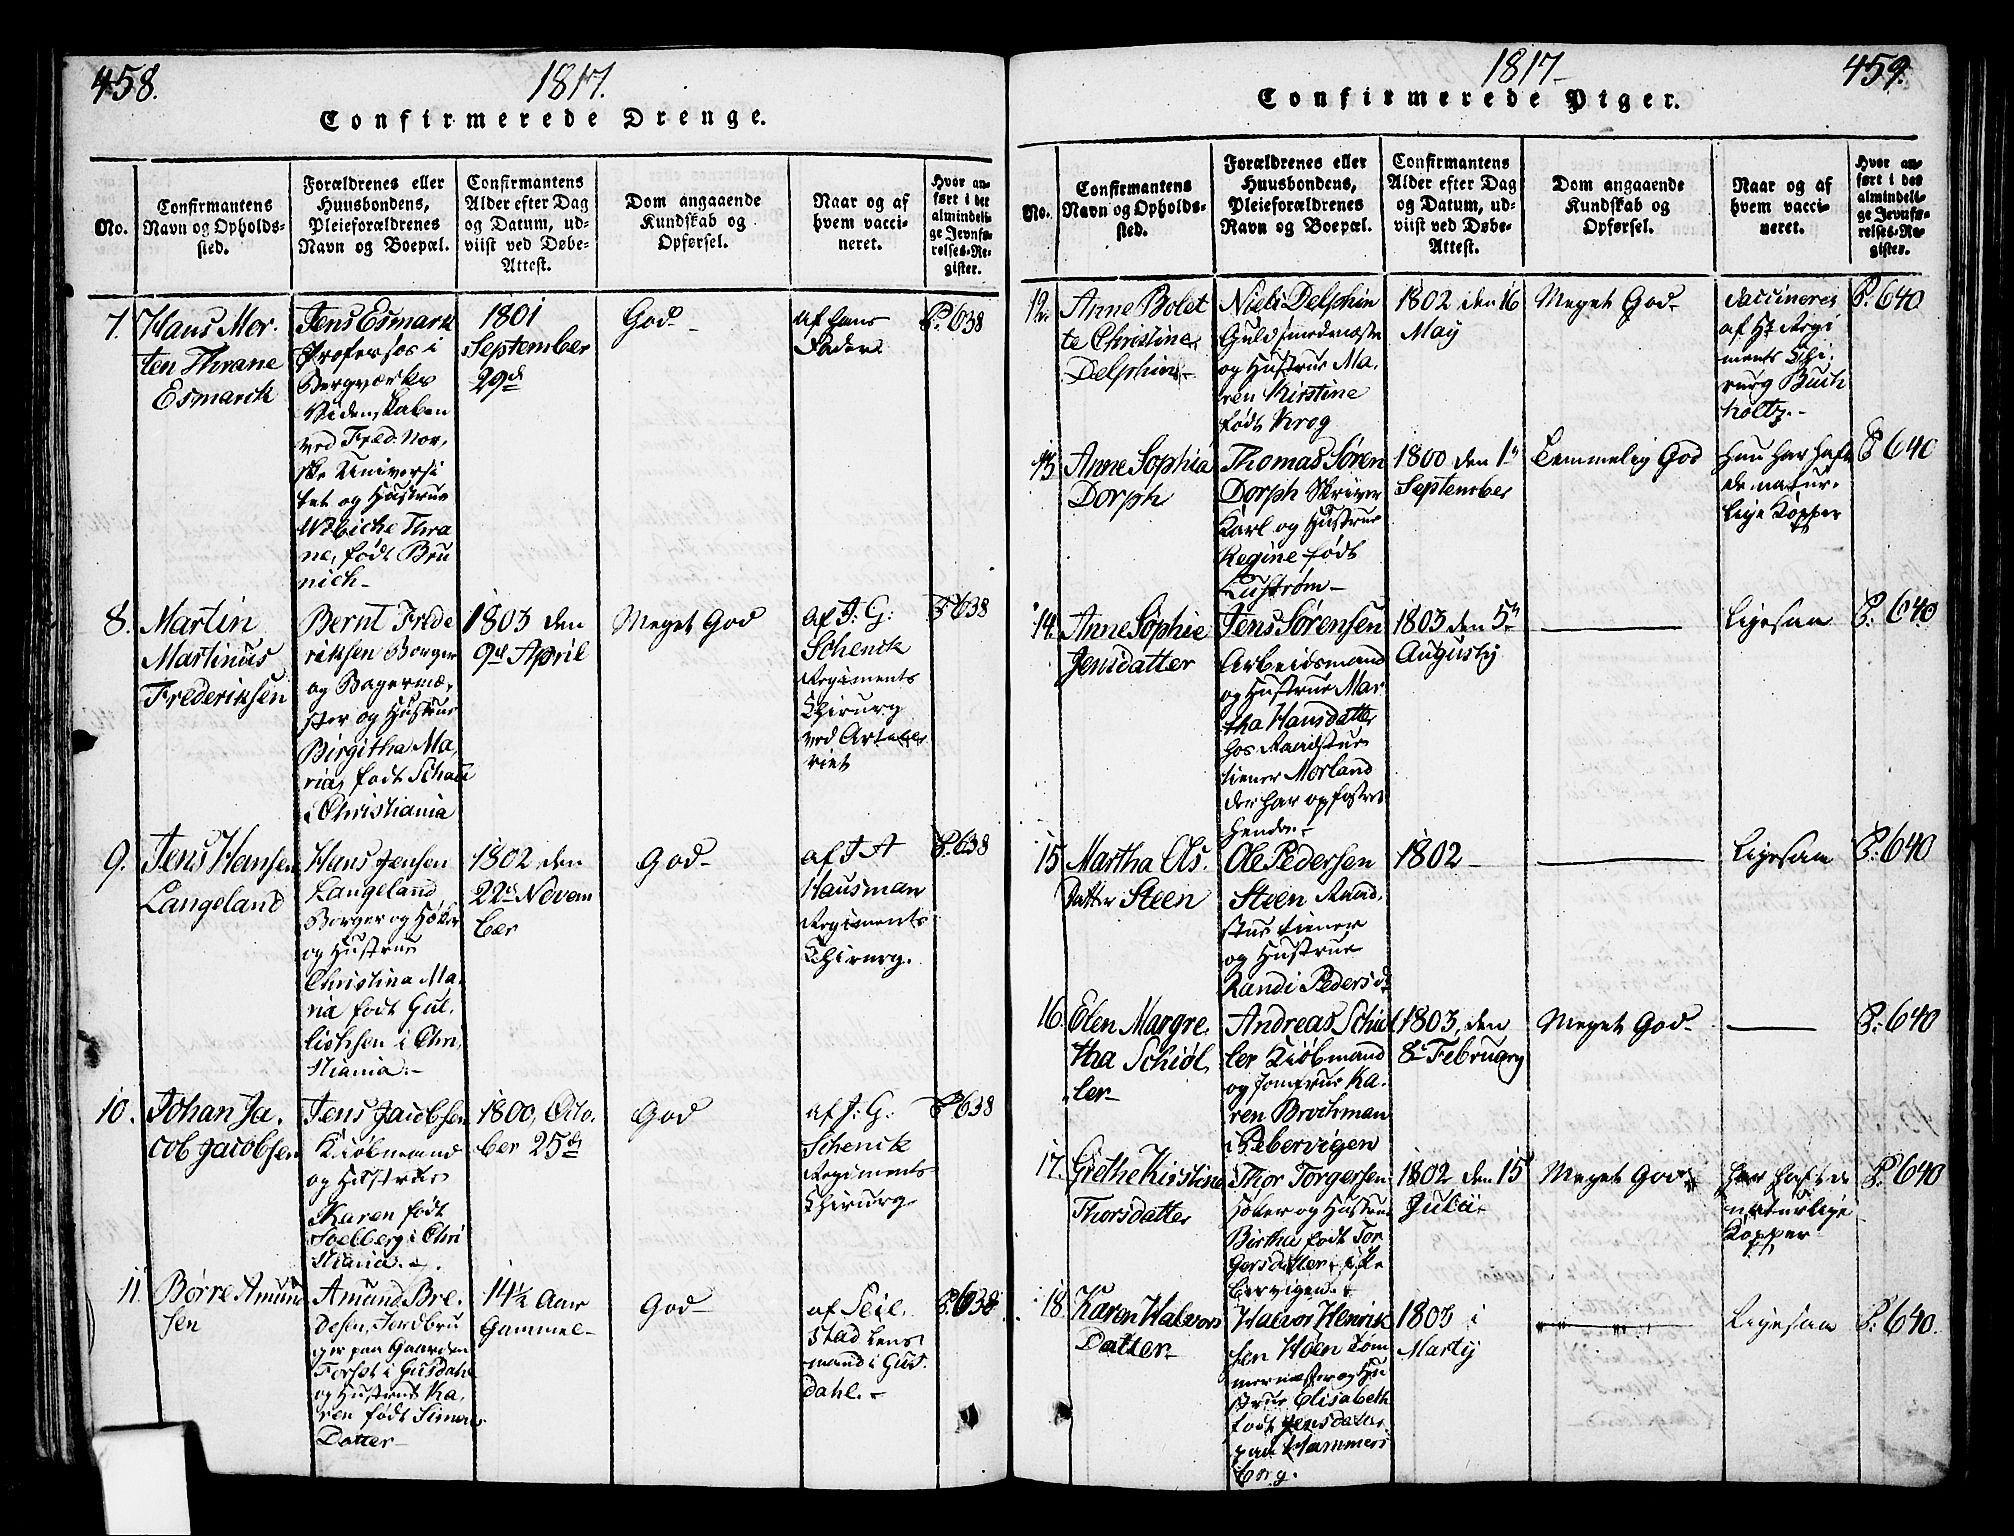 458.
1817.
Confirmerede Drenge.
No.
Confirmantens
Navn og Opholds-
sted.
Forældrenes eller
Huusbondens,
Pleieforældrenes
Navn og Boepæl.
Confirmantens
Alder efter Dag
og Datum, ud-
viist ved Døbe-
Attest.
Dom angaaende
Kundskab og
Opførsel.
Naar og af
hvem vacci-
neret.
Hvor an-
ført i det
almindeli-
ge Jevnfø-
relses-Re-
gister.
7.
Hans Mor-
ten Thrane
Esmarck
Jens Esmark
Professor i
Bergværks
Videnskaben
ved Fred. Nor-
ske Universi
tet og Hustrue
Wibicke Thra
ne, født Brü
nich
1801
September
29d
God
af hans
Fader
P. 638
8.
Martin
Martinus
Frederiksen
Bernt Frede
riksen Borger
og Bagermæ-
ster og Hustrue
Birgitha Ma-
ria, født
i Christiania
1803 den
9de April
Meget God
af J: G:
Schenck
Regiments
Chirurg
ved Artelle-
riet
P. 638
9.
Jens Hansen
Langeland
Hans Jensen
Langeland
Borger og Høker
og Hustrue
Christina Ma-
ria født Gul-
lichsen i Chri-
stiania.
1802 den
22de Novem
ber
God
af J A
Hausman
Regiments
Chirurg.
P. 638
10.
Johan Ja-
cob Jacobsen
Jens Jacobsen
Kiøbmand
og Hustrue
Karen født
Soelberg i Chri
stiania.
1800, Octo-
ber 25de
God
af J: G:
Schenck
Regiments
Chirurg
P. 638
11.
Børre Amund
sen
Amund Bre-
desen, Jordbru
ger paa Gaarden
i Gusdahl
og Hustrue Ka-
ren født Simens
Datter
14½ Aar
Gammel
God
af Seil-
stad Lens
mand i Gus-
dahl.
P. 638
1817
459.
Confirmerede Piger.
No.
Confirmantens
Navn og Opholds-
sted.
Forældrenes eller
Huusbondens,
Pleieforældrenes
Navn og Boepæl.
Confirmantens
Alder efter Dag
og Datum, ud-
viist ved Døbe-
Attest.
Dom angaaende
Kundskab og
Opførsel.
Naar og af
hvem vacci-
neret.
Hvor an-
ført i det
almindeli-
ge Jevnfø-
relses-Re-
gister.
12.
Anne Bolet
te Christine
Delphin
Niels Delphin
Guldsmedmester
og Hustrue Ma-
ren Kirstine
født Krog
1802 den 16
May
Meget God
Vaccineret
af Hr Regi
ments Chi-
rurg Buch
holtz.
P. 640
13.
Anne Sophia
Dorph
Thomas Søren
Dorph Skriver
Karl og Hustrue
Regine født
Lustrøm
1800 den 1n
September
Temmelig God
Hun har haft
de natur-
lige Kopper
P 640
14.
Anne Sophie
Jensdatter
Jens Sørensen
Arbeidsmand
og Hustrue Mar
tha Hansdatter
hos Raadstue
tiener Morland
der har opfostret
hende.
1803 den 5n
Augusty
Ligesaa
P. 640
15
Martha Ols-
Datter Steen
Ole Pedersen
Steen Raad-
stue tiener
og Hustrue
Randi Peders dr
1802
Ligesaa
P. 640
16.
Elen Margre-
tha Schiøl-
ler
Andreas Schiøl
ler Kiøbmand
og Jomfrue Ka-
ren Brochman
i Pebervigen
1803, den
8 February
Meget God
P. 640
17.
Grethe Kirstine
Thorsdatter
Thor Torgersen
Høker og Hustrue
Birthe født Tor
gersdatter i Pe
bervigen.
1802 den 15
Julii
Meget God
har haft de
naturlige
Kopper
P. 640
18.
Karen Halvors
Datter
Halvor Henrik
sen Høen Tøm
mermester og Hu
strue Elisabeth
født Jensdatter
paa Hammers
borg.
1803 i
Marty
Ligesaa
P. 640.